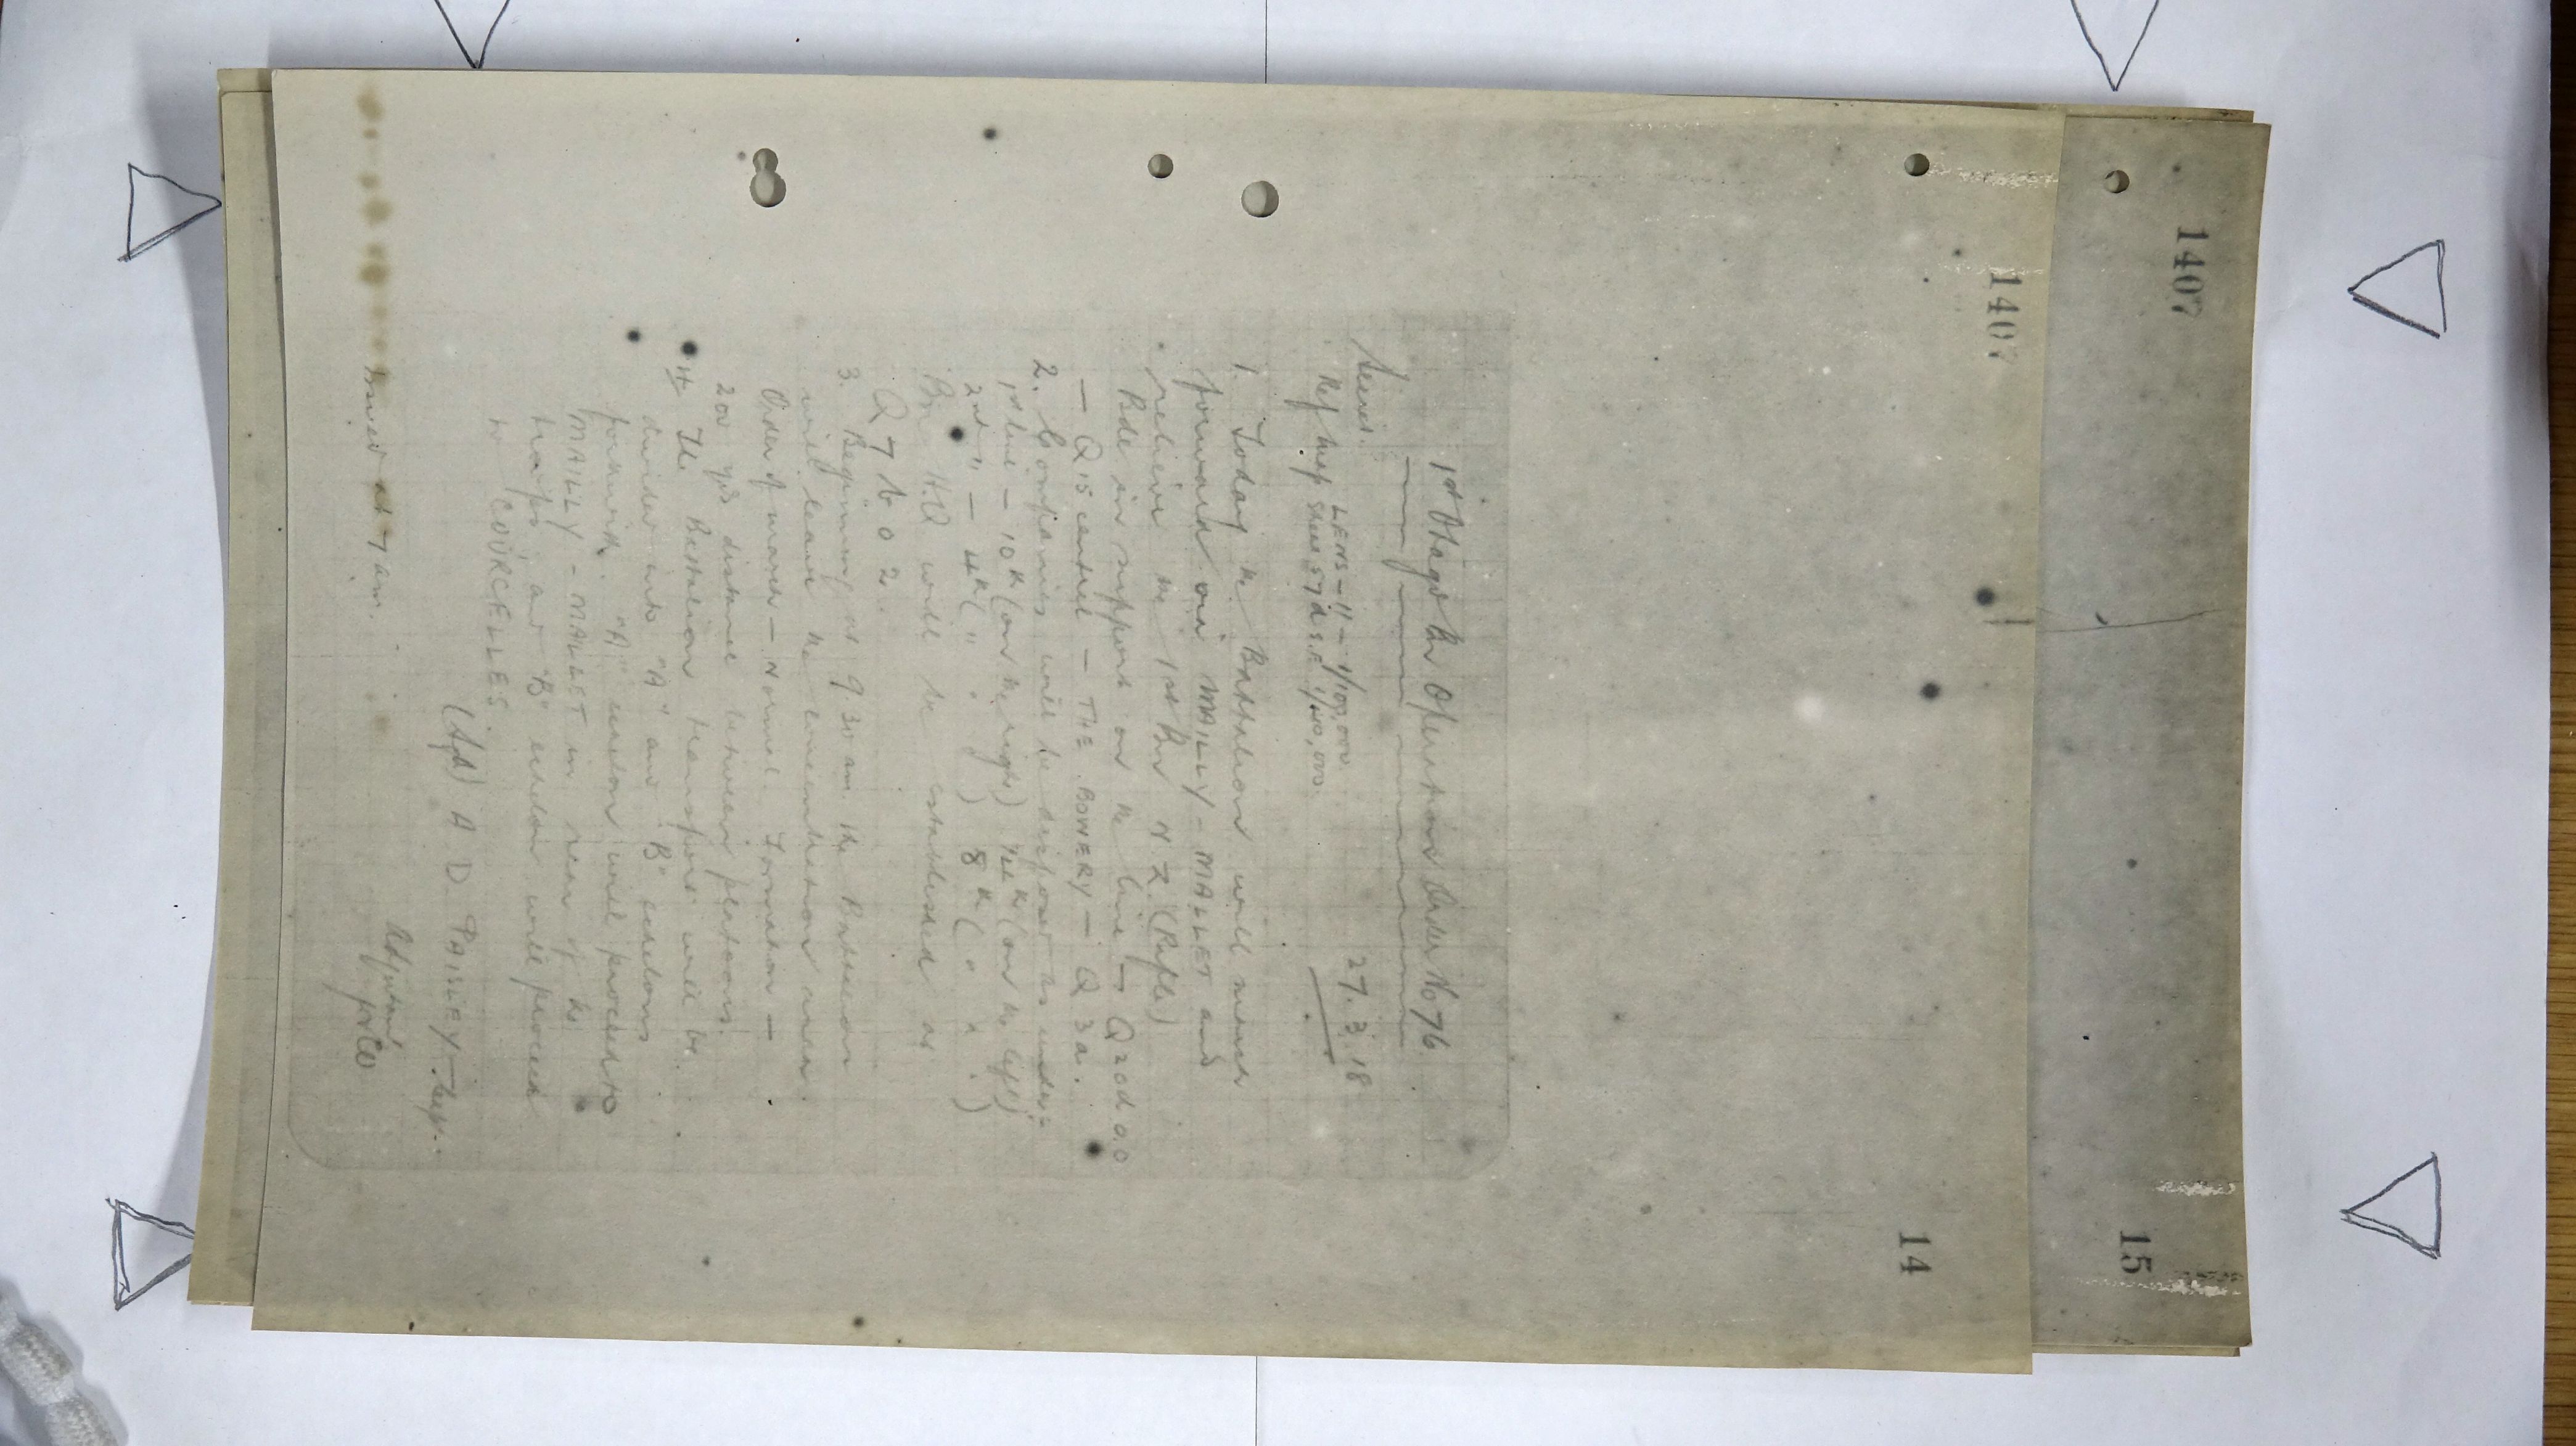 1407
15
1407
14
1st Otago Bn Operation Order No 76.
Secret.
27.3.18
LENS - 11 - 1/100,000.
Ref Map Sheet 57d S.E. 1/40,000.
1. Today the Battalion will march
forward on MAILLY-MALLET and
relieve the 1st Bn N Z. (Rifle)
Bde in support on the line - Q 20d.0.0
- Q 15 central - THE BOWERY - Q 3a.
2. Companies will be disposed as under:-
1st line - 10th (on the right) 14th (on the left)
2nd " - 4th ( " " ) 8th ( " " )
Bn HQ will be established at
Q 7 b 0 2.
3. Beginning at 9 30 am the Battalion
will leave the concentration area.
Order of march - Normal. Formation -
200 yds distance between platoons.
4. The Battalion transport will be
divided into "A" and "B" echelons
forward. "A" echelon will proceed to
MAILLY-MALLET in rear of the
troops and "B" echelon will proceed
to COURCELLES.
(Sgd) A D. PAISLEY Capt.
Adjutant
for CO
Issued at 7 am.